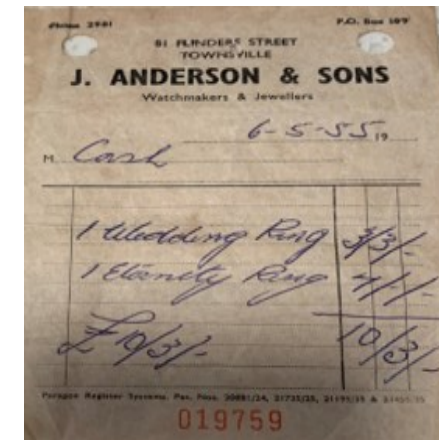 Phone 2981 P.O. Box 109
81 FLINDERS STREET
TOWNSVILLE
J. ANDERSON & SONS
Watchmakers & Jewellers
6-5-55 19
M Cash
1 Wedding Ring 3/3/-
1 Eternity Ring 7/-/-
£10/3/- 10/3/-
Paragon Register Systems. Pat. Nos. 20881/34, 21735/35, 21195/35 &
019759